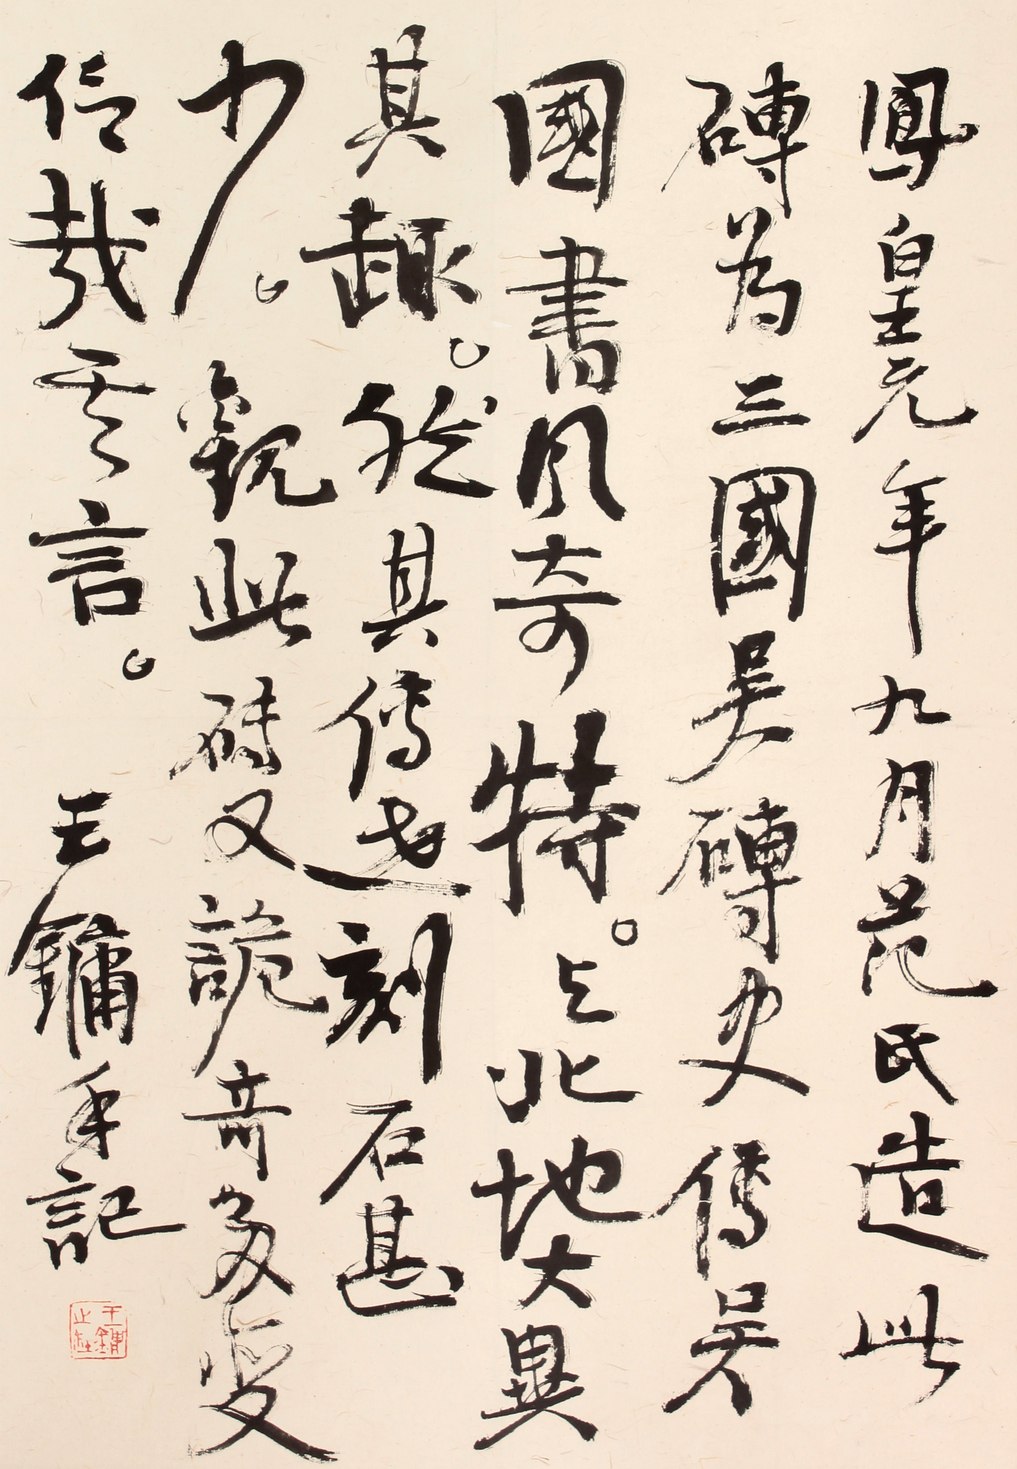 鳳皇元年九月范氏造此
磚為三國吳磚史傳吳
國書風奇特。与北地大異
其趣。然其傳世刻石甚
少。觀此磚又詭奇多變
信哉其言。王鏞手記
王鏞